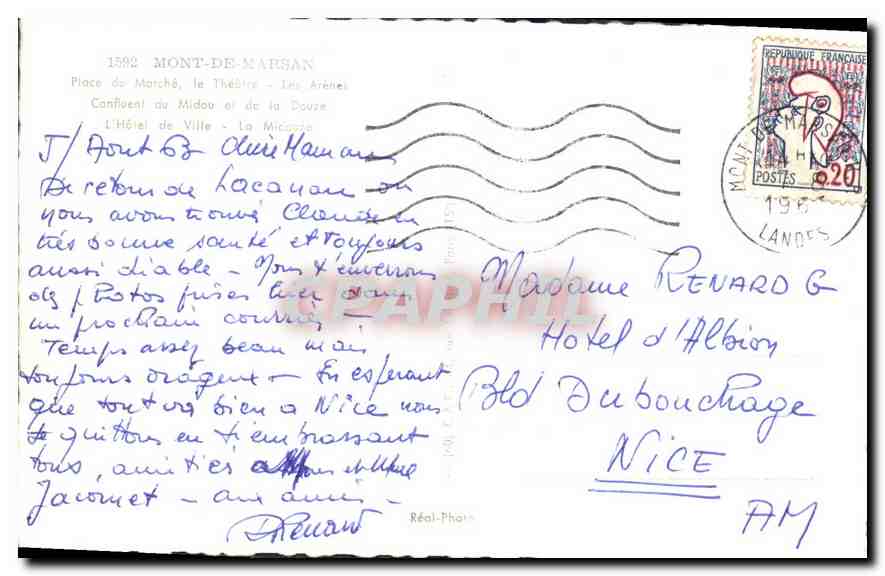 1592 MONT-DE-MARSAN
Place du Marché, le Théâtre - Les Arènes
Confluent du Midou et de la Douze
L'Hôtel de Ville - La Midouze
5/Aout 63 Chère Maman
De retour de Lacanau où
nous avons trouvé Claude en
très bonne santé et toujours
aussi diable - Nous t'enverrons
des photos prises hier dans
un prochain courrier -
Temps assez beau mais
toujours orageux - En espérant
que tout va bien à Nice nous
te quittons en t'embrassant
tous, amitiés à et Mme
Jacomet - aux amis -
Renard
Réal-Photo
CPAPHIL
REPUBLIQUE FRANCAISE
POSTES 0,20
MONT DE MARSAN
196
LANDES
Madame RENARD G
Hotel d'Albion
Bld Dubouchage
NICE
AM